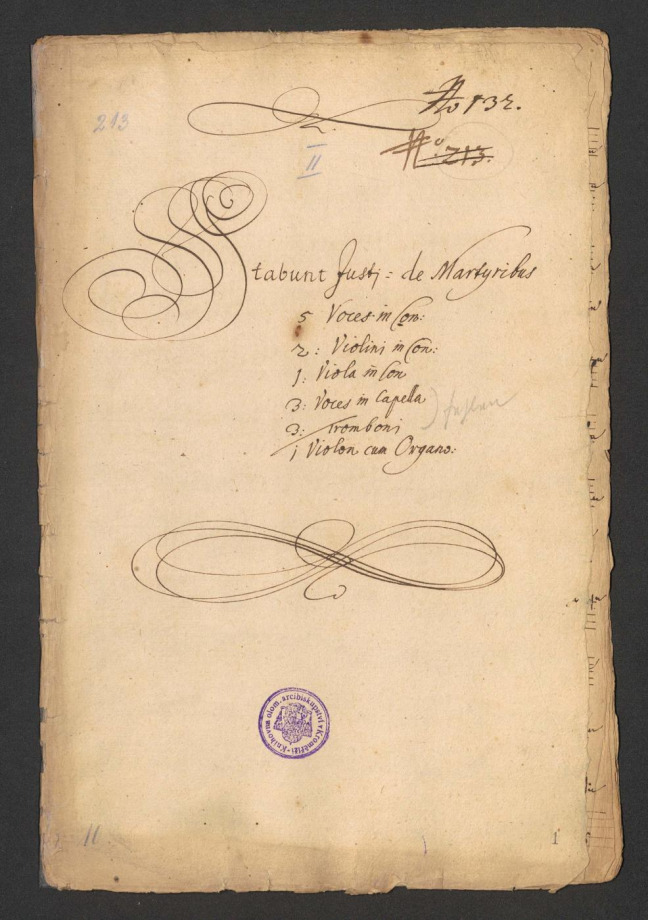 No 132.
213
2.
II
No. 213.
Stabunt Justj: de Martyribus
5 Voces in Con:
2: Violini in Con:
1: Viola in Con
3: Voces in Capella
3: Tromboni
1 Violon cum Organo:
Knihovna olom. arcibiskupství v Kroměříži
11
1